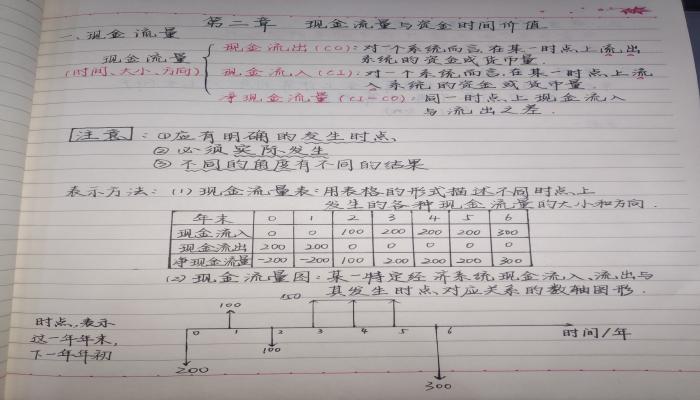 第二章 现金流量与资金时间价值
一、现金流量
现金流量
(时间、大小、方向)
现金流出(CO): 对一个系统而言,在某一时点上流出
系统的资金或货币量.
现金流入(CI): 对一个系统而言,在某一时点上流
入系统的资金或货币量.
净现金流量(CI-CO): 同一时点上现金流入
与流出之差.
注意: ①应有明确的发生时点
②必须实际发生
③不同的角度有不同的结果
表示方法: (1)现金流量表: 用表格的形式描述不同时点上
发生的各种现金流量的大小和方向.
年末 0 1 2 3 4 5 6
现金流入 0 0 100 200 200 200 300
现金流出 200 200 0 0 0 0 0
净现金流量 -200 -200 100 200 200 200 300
(2)现金流量图: 某一特定经济系统现金流入、流出与
其发生时点对应关系的数轴图形.
100
150
时点,表示
这一年年末,
下一年年初
0 1 2 3 4 5 6
时间/年
200
100
300